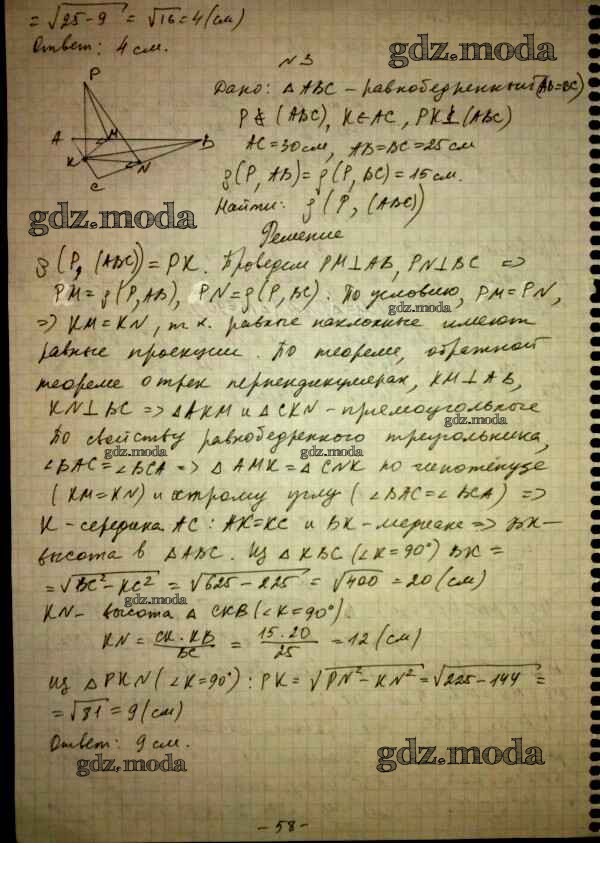 = √25-9 = √16 = 4 (см)
Ответ: 4 см.
gdz.moda
N 3
Дано: △ABC – равнобедренный (AB=BC)
P∉(ABC), K∈AC, PK⊥(ABC)
AC=30см, AB=BC=25см
ρ(P, AB)=ρ(P, BC)=15см.
Найти: ρ(P, (ABC))
P
A
M
B
K
N
C
gdz.moda
Решение
ρ(P, (ABC))=PK. Проведем PM⊥AB, PN⊥BC =>
PM=ρ(P,AB), PN=ρ(P,BC). По условию, PM=PN,
gdz.moda
=> KM=KN, т.к. равные наклонные имеют
равные проекции. По теореме, обратной
теореме о трех перпендикулярах, KM⊥AB,
KN⊥BC => △AKM и △CKN – прямоугольные
По свойству равнобедренного треугольника,
gdz.moda
gdz.moda
gdz.moda
∠BAC=∠BCA => △AMK=△CNK по гипотенузе
(KM=KN) и острому углу (∠BAC=∠BCA) =>
K – середина AC: AK=KC и BK – медиана => BK –
высота в △ABC. Из △KBC (∠K=90°) BK =
= √BC²-KC² = √625-225 = √400 = 20 (см)
gdz.moda
KN – высота △CKB (∠K=90°)
KN = CK·KB/BC = 15·20/25 = 12 (см)
Из △PKN (∠K=90°): PK = √PN²-KN² = √225-144 =
= √81 = 9 (см)
Ответ: 9 см.
gdz.moda
gdz.moda
- 58 -